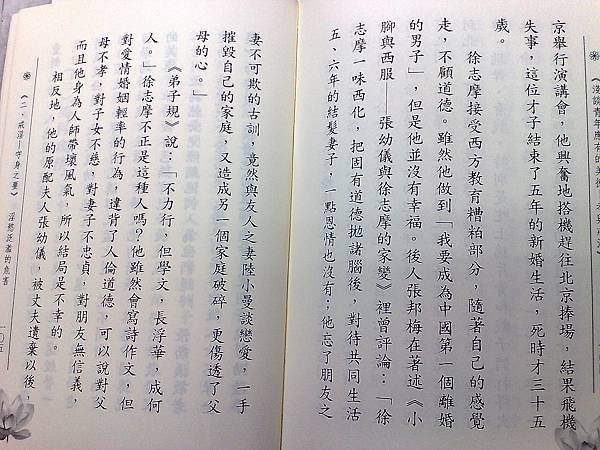 京舉行演講會，他興奮地搭機趕往北京捧場，結果飛機
失事，這位才子結束了五年的新婚生活，死時才三十五
歲。
徐志摩接受西方教育糟粕部分，隨著自己的感覺
走，不顧道德。雖然他做到「我要成為中國第一個離婚
的男子」，但是他並沒有幸福。後人張邦梅在著述《小
腳與西服——張幼儀與徐志摩的家變》裡曾評論：「徐
志摩一味西化，把固有道德拋諸腦後，對待共同生活
五、六年的結髮妻子，一點恩情也沒有；他忘了朋友之
妻不可欺的古訓，竟然與友人之妻陸小曼談戀愛，一手
摧毀自己的家庭，又造成另一個家庭破碎，更傷透了父
母的心。」
《弟子規》說：「不力行，但學文，長浮華，成何
人。」徐志摩不正是這種人嗎？他雖然會寫詩作文，但
對愛情婚姻輕率的行為，違背了人倫道德，可以說對父
母不孝，對子女不慈，對妻子不忠貞，對朋友無信義，
而且他身為人師帶壞風氣，所以結局是不幸的。
相反地，他的原配夫人張幼儀，被丈夫遺棄以後，
《二、戒淫—守身之要》 淫慾泛濫的危害
一〇五